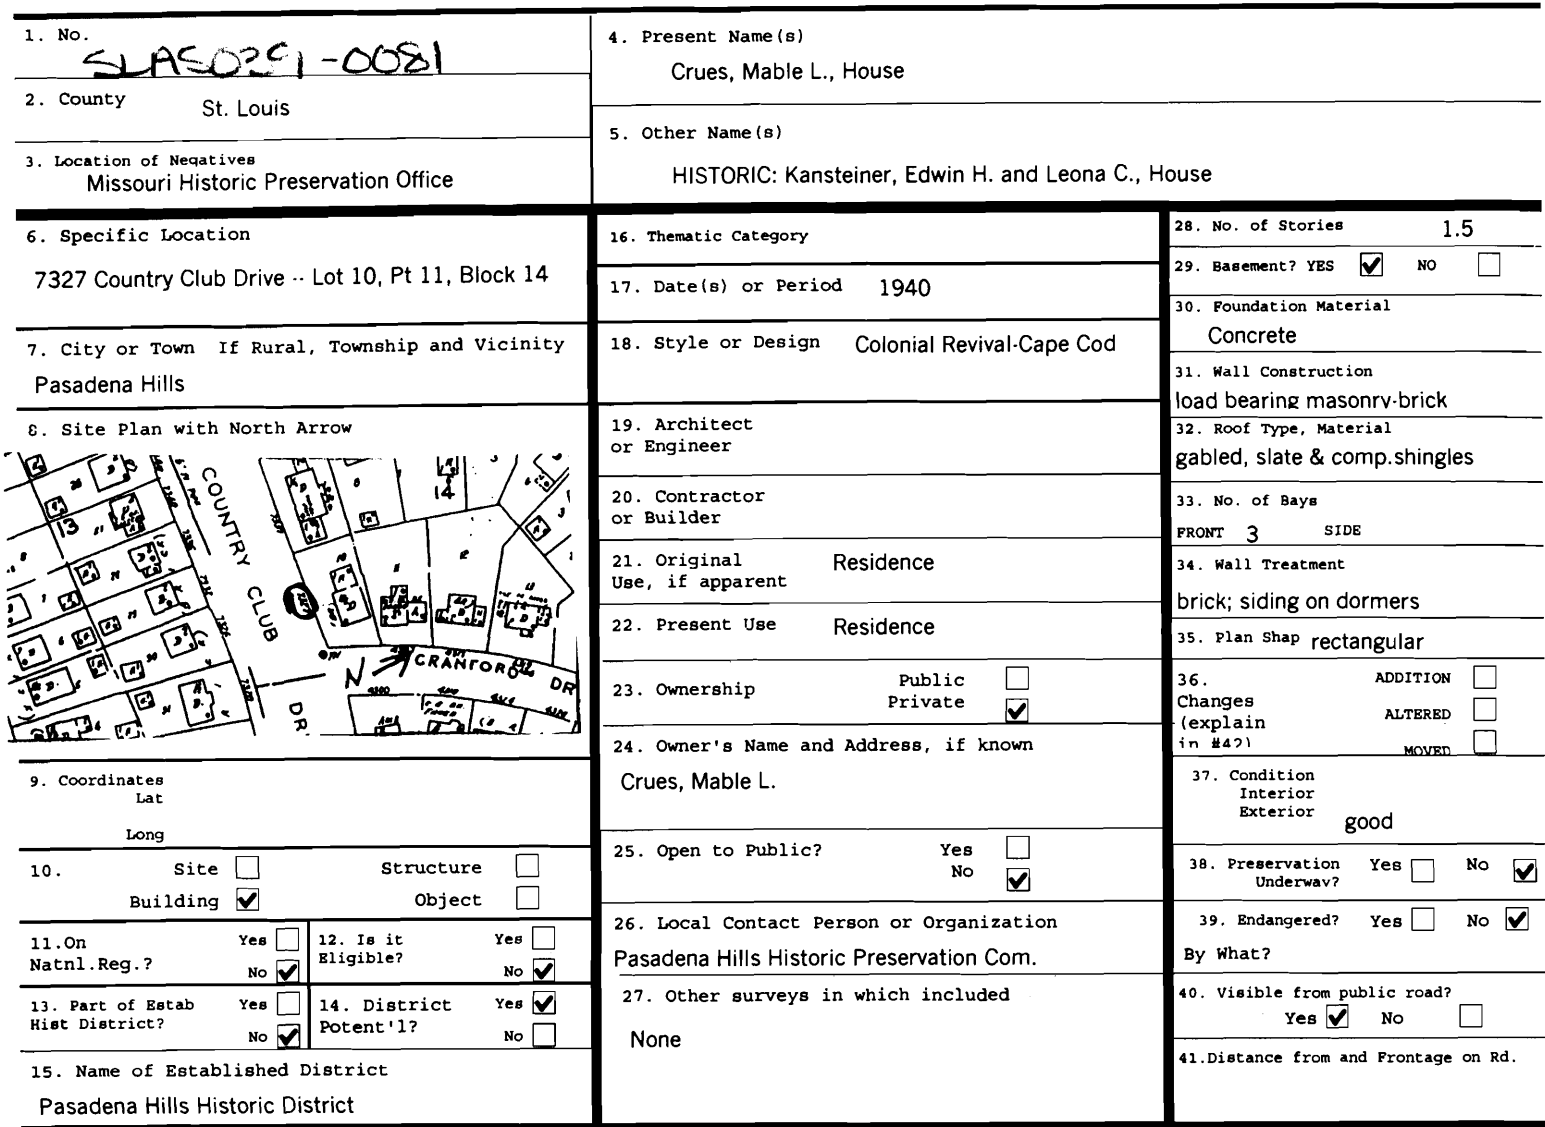 1. No.
SLAS029-0081
2. County
St. Louis
3. Location of Negatives
Missouri Historic Preservation Office
4. Present Name(s)
Crues, Mable L., House
5. Other Name(s)
HISTORIC: Kansteiner, Edwin H. and Leona C., House
6. Specific Location
7327 Country Club Drive -- Lot 10, Pt 11, Block 14
7. City or Town If Rural, Township and Vicinity
Pasadena Hills
8. Site Plan with North Arrow
COUNTRY CLUB DR
CRANFORD DR
13
14
N
9. Coordinates
Lat
Long
10. Site Structure
Building ✔ Object
11.On Yes
Natnl.Reg.? No ✔
12. Is it Yes
Eligible? No ✔
13. Part of Estab Yes
Hist District? No ✔
14. District Yes ✔
Potent'l? No
15. Name of Established District
Pasadena Hills Historic District
16. Thematic Category
17. Date(s) or Period 1940
18. Style or Design Colonial Revival-Cape Cod
19. Architect
or Engineer
20. Contractor
or Builder
21. Original Residence
Use, if apparent
22. Present Use Residence
23. Ownership Public
Private ✔
24. Owner's Name and Address, if known
Crues, Mable L.
25. Open to Public? Yes
No ✔
26. Local Contact Person or Organization
Pasadena Hills Historic Preservation Com.
27. Other surveys in which included
None
28. No. of Stories 1.5
29. Basement? YES ✔ NO
30. Foundation Material
Concrete
31. Wall Construction
load bearing masonry-brick
32. Roof Type, Material
gabled, slate & comp.shingles
33. No. of Bays
FRONT 3 SIDE
34. Wall Treatment
brick; siding on dormers
35. Plan Shap rectangular
36. ADDITION
Changes
(explain ALTERED
in #42) MOVED
37. Condition
Interior
Exterior good
38. Preservation Yes No ✔
Underway?
39. Endangered? Yes No ✔
By What?
40. Visible from public road?
Yes ✔ No
41.Distance from and Frontage on Rd.